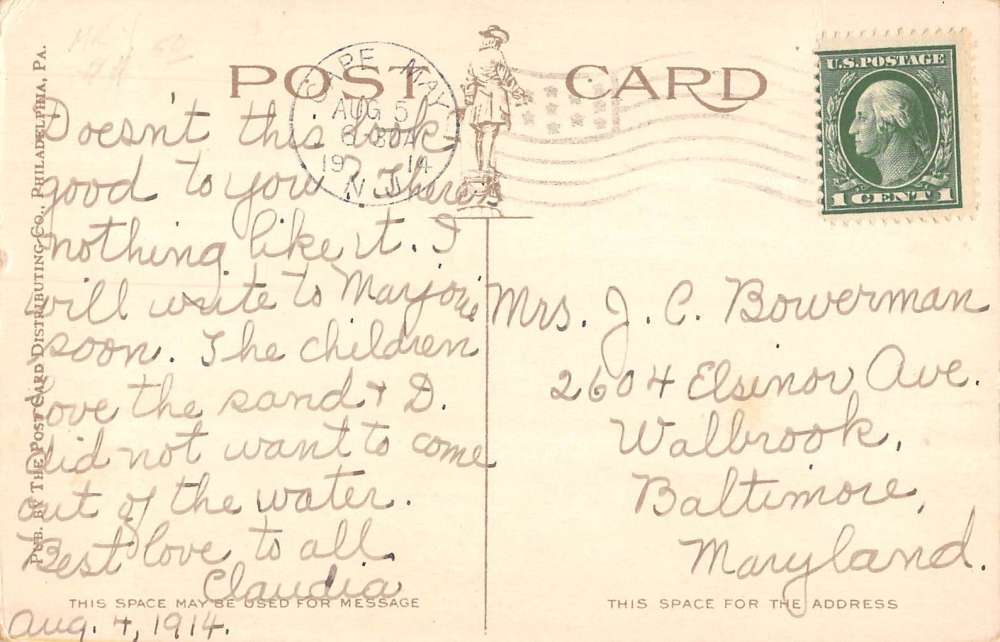 POST CARD
CAPE MAY
AUG 5
6-30A
1914
N.J.
U.S. POSTAGE
1 CENT 1
Doesn't this look
good to you. There's
nothing like it. I
will write to Marjorie
soon. The children
love the sand & D.
did not want to come
out of the water.
Best love to all
Claudia
Aug. 4, 1914.
Mrs. J. C. Bowerman
2604 Elsinor Ave.
Walbrook,
Baltimore,
Maryland.
THIS SPACE MAY BE USED FOR MESSAGE
THIS SPACE FOR THE ADDRESS
PUB. BY THE POST CARD DISTRIBUTING CO., PHILADELPHIA, PA.